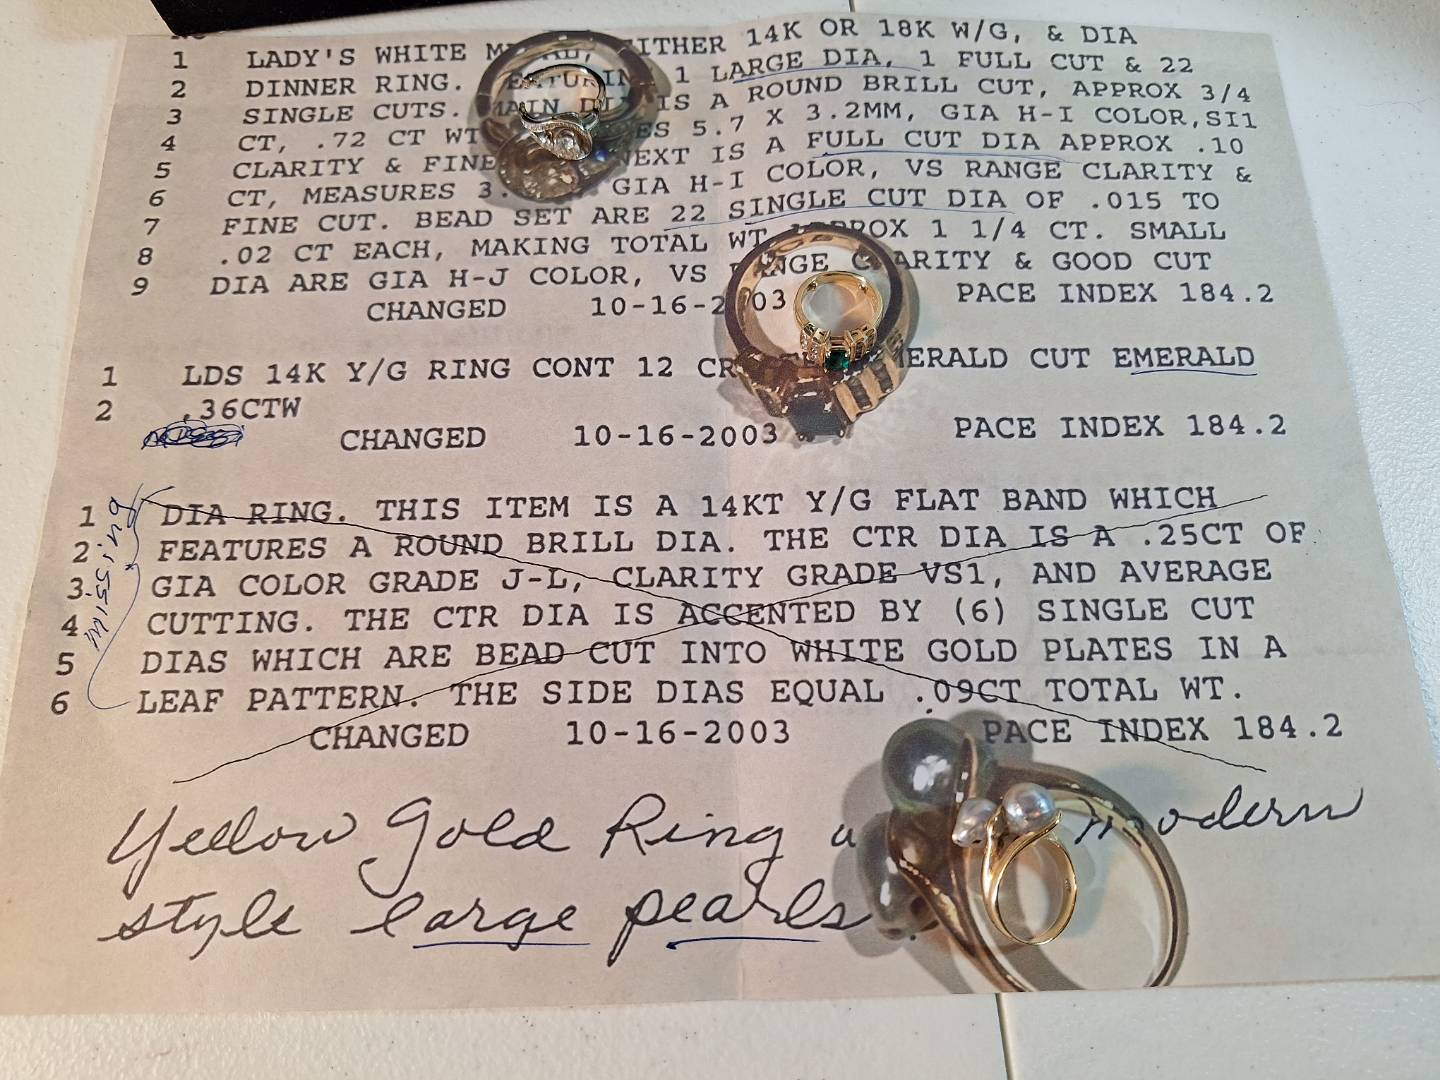 1 LADY'S WHITE EITHER 14K OR 18K W/G, & DIA
2 DINNER RING. FEATURING 1 LARGE DIA, 1 FULL CUT & 22
3 SINGLE CUTS. MAIN DIA IS A ROUND BRILL CUT, APPROX 3/4
4 CT, .72 CT WT 5.7 X 3.2MM, GIA H-I COLOR, SI1
5 CLARITY & FINE NEXT IS A FULL CUT DIA APPROX .10
6 CT, MEASURES 3. GIA H-I COLOR, VS RANGE CLARITY &
7 FINE CUT. BEAD SET ARE 22 SINGLE CUT DIA OF .015 TO
8 .02 CT EACH, MAKING TOTAL WT APPROX 1 1/4 CT. SMALL
9 DIA ARE GIA H-J COLOR, VS RANGE CLARITY & GOOD CUT
CHANGED 10-16-2003 PACE INDEX 184.2
1 LDS 14K Y/G RING CONT 12 EMERALD CUT EMERALD
2 .36CTW
CHANGED 10-16-2003 PACE INDEX 184.2
1 DIA RING. THIS ITEM IS A 14KT Y/G FLAT BAND WHICH
2 FEATURES A ROUND BRILL DIA. THE CTR DIA IS A .25CT OF
3 GIA COLOR GRADE J-L, CLARITY GRADE VS1, AND AVERAGE
4 CUTTING. THE CTR DIA IS ACCENTED BY (6) SINGLE CUT
5 DIAS WHICH ARE BEAD CUT INTO WHITE GOLD PLATES IN A
6 LEAF PATTERN. THE SIDE DIAS EQUAL .09CT TOTAL WT.
CHANGED 10-16-2003 PACE INDEX 184.2
Yellow Gold Ring modern
style large pearls